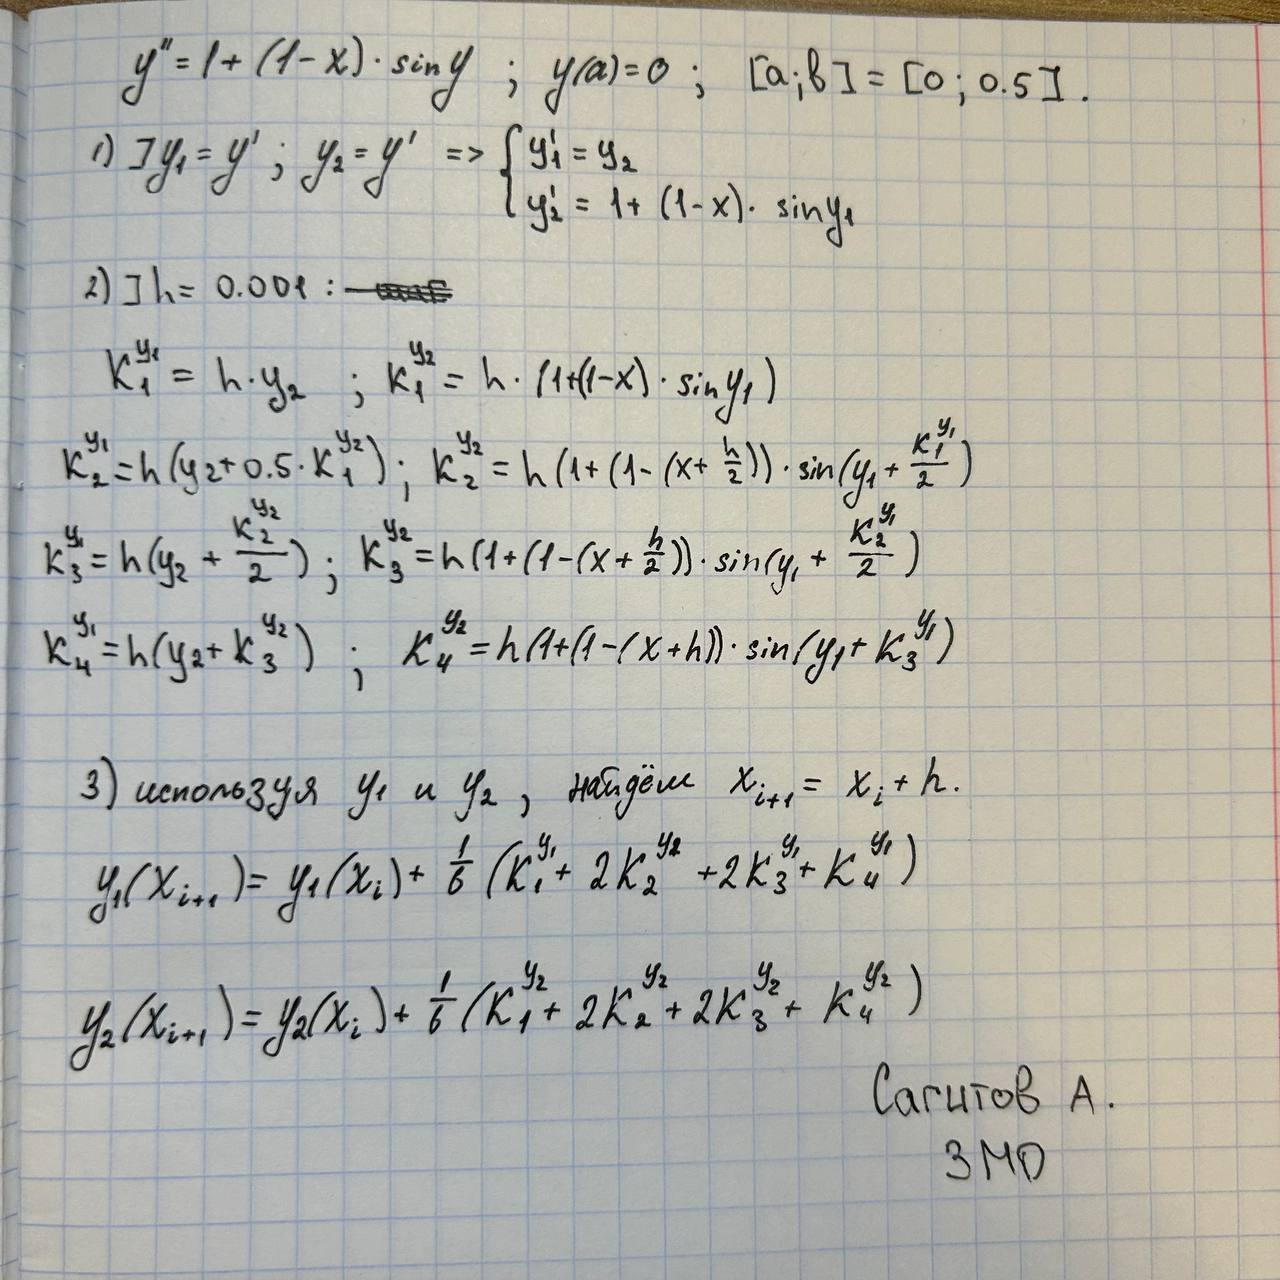 y'' = 1 + (1-x) · sin y ; y(a) = 0 ; [a; b] = [0; 0.5].
1) ] y₁ = y' ; y₂ = y' => { y₁' = y₂
y₂' = 1 + (1-x) · sin y₁
2) ] h = 0.001 :
K₁^{y₁} = h · y₂ ; K₁^{y₂} = h · (1+(1-x) · sin y₁)
K₂^{y₁} = h(y₂ + 0.5 · K₁^{y₂}) ; K₂^{y₂} = h(1+(1-(x+h/2)) · sin(y₁ + K₁^{y₁}/2)
K₃^{y₁} = h(y₂ + K₂^{y₂}/2) ; K₃^{y₂} = h(1+(1-(x+h/2)) · sin(y₁ + K₂^{y₁}/2)
K₄^{y₁} = h(y₂ + K₃^{y₂}) ; K₄^{y₂} = h(1+(1-(x+h)) · sin(y₁ + K₃^{y₁})
3) используя y₁ и y₂ , найдём x_{i+1} = x_i + h.
y₁(x_{i+1}) = y₁(x_i) + 1/6 (K₁^{y₁} + 2K₂^{y₂} + 2K₃^{y₁} + K₄^{y₁})
y₂(x_{i+1}) = y₂(x_i) + 1/6 (K₁^{y₂} + 2K₂^{y₂} + 2K₃^{y₂} + K₄^{y₂})
Сагитов А.
3МО